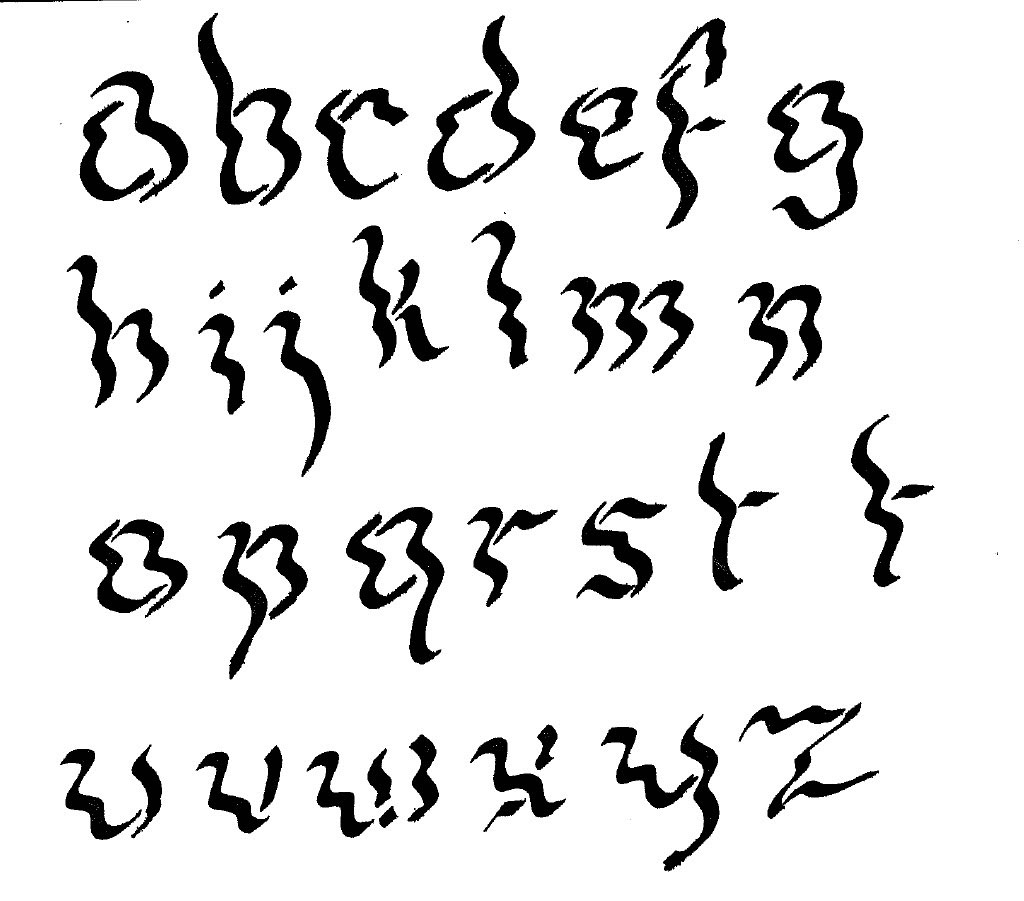 a b c d e f g
h i j k l m n
o p q r s t t
u v w x y z